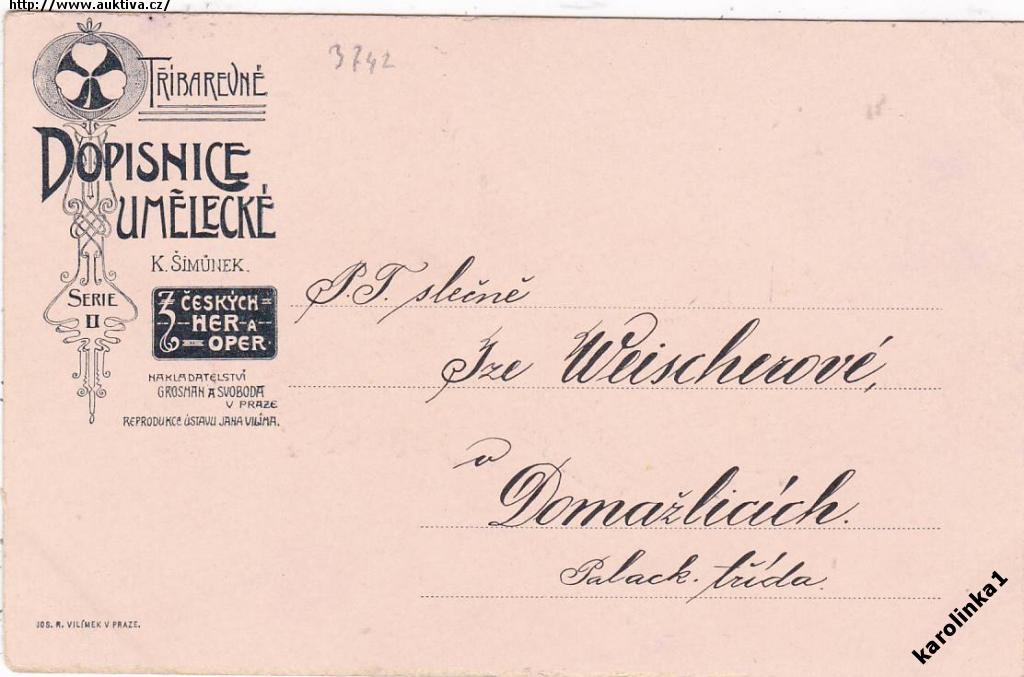 http://www.auktiva.cz/
3742
TŘÍBAREVNÉ
DOPISNICE
UMĚLECKÉ
K. ŠIMŮNEK.
SERIE
II
Z ČESKÝCH
HER A
OPER.
NAKLADATELSTVÍ
GROSMAN A SVOBODA
V PRAZE
REPRODUKCE ÚSTAVU JANA VILÍMA.
P.T. slečně
Ize Weischerové,
v
Domažlicích.
Palack. třída.
JOS. R. VILÍMEK V PRAZE.
karolinka1